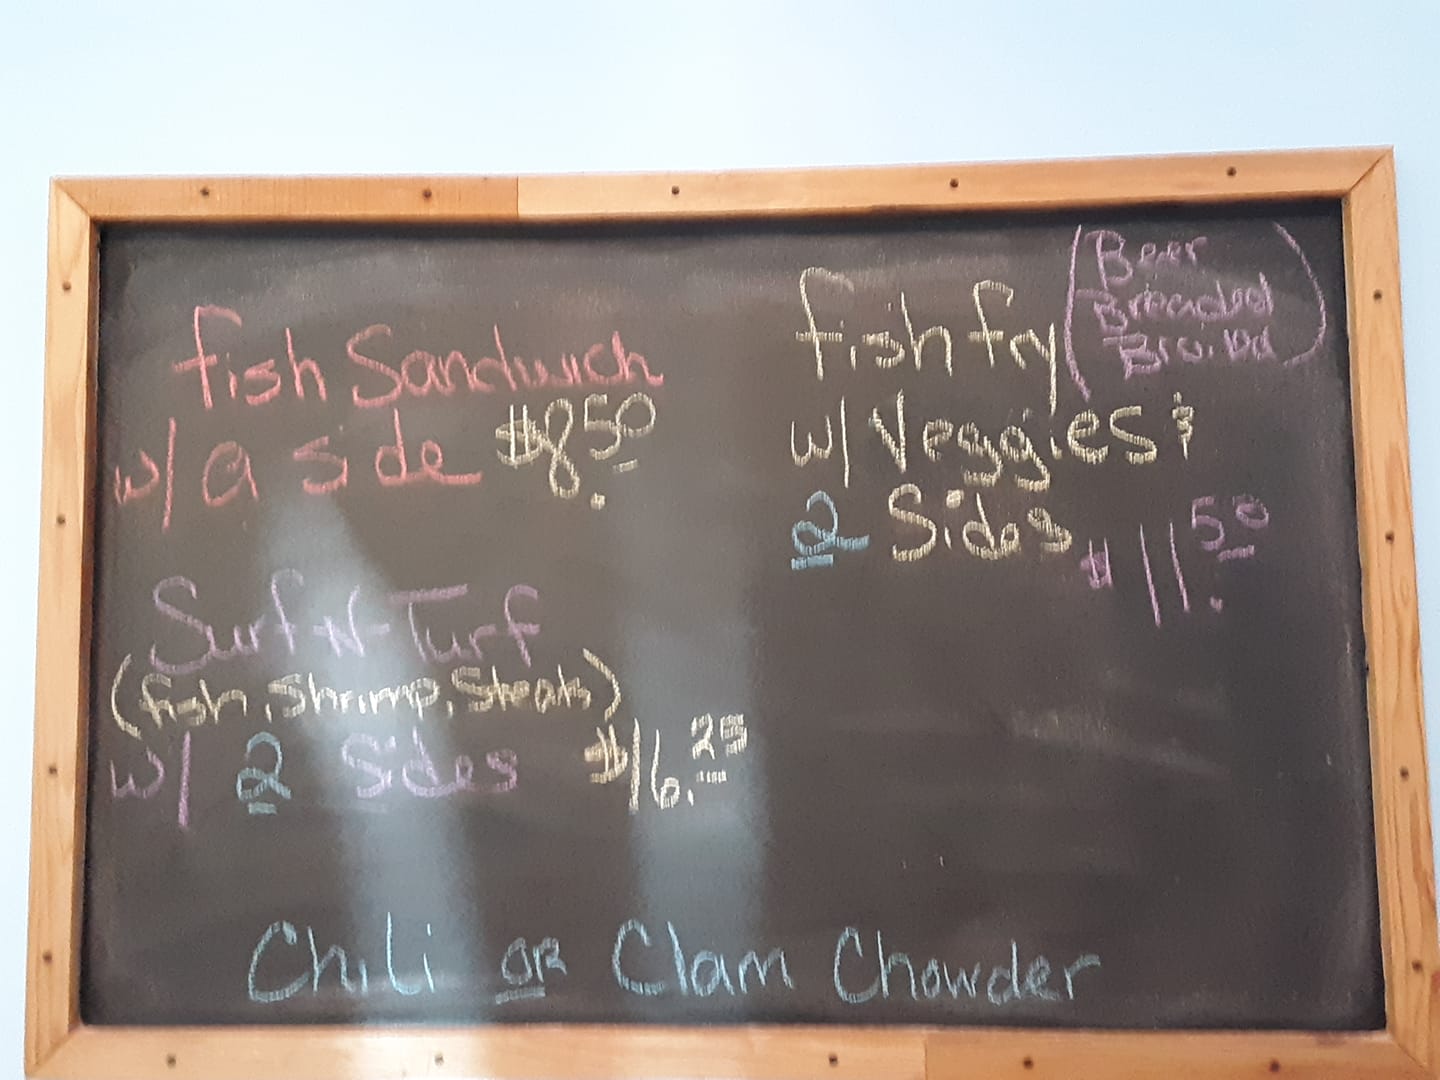 Fish Sandwich
w/ a side $8.50
Surf-N-Turf
(fish, Shrimp, Steak)
w/ 2 Sides $16.25
fish fry (Beer
Breaded
Broiled)
w/ Veggies &
2 Sides $11.50
Chili or Clam Chowder